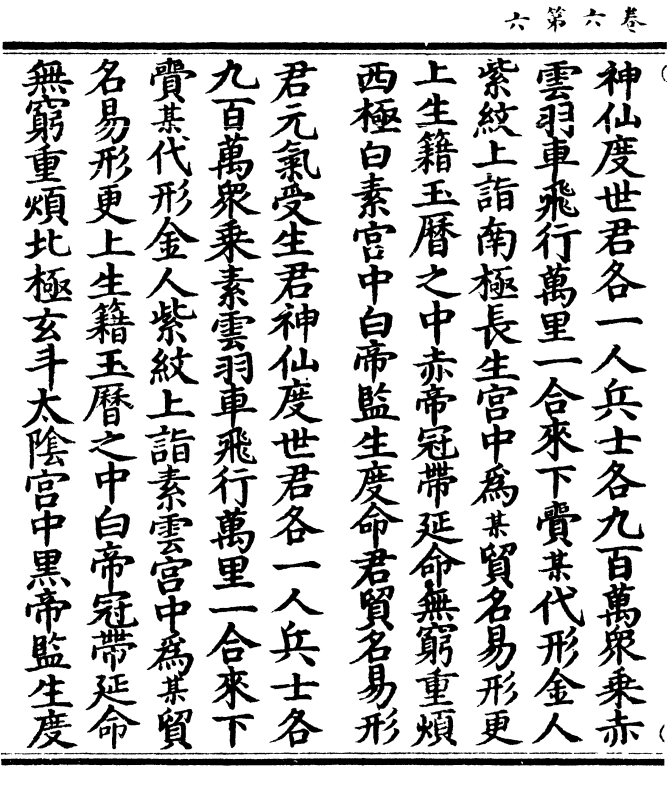 卷六第六
神仙度世君各一人兵士各九百萬眾乗赤
雲羽車飛行萬里一合來下賷某代形金人
紫紋上詣南極長生宮中爲某貿名易形更
上生籍玉曆之中赤帝冠帶延命無窮重煩
西極白素宮中白帝監生度命君貿名易形
君元氣受生君神仙度世君各一人兵士各
九百萬眾乗素雲羽車飛行萬里一合來下
賷某代形金人紫紋上詣素雲宮中爲某貿
名易形更上生籍玉曆之中白帝冠帶延命
無窮重煩北極玄斗太隂宮中黒帝監生度